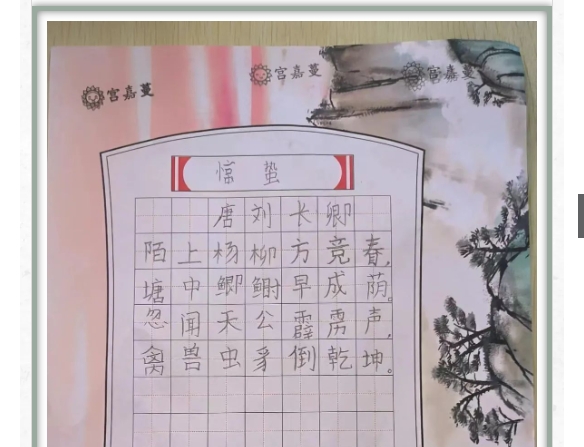 宫嘉蔓 宫嘉蔓 宫嘉蔓
惊 蛰
唐刘长卿
陌上杨柳方竟春,
塘中鲫鲥早成荫。
忽闻天公霹雳声,
禽兽虫豸倒乾坤。